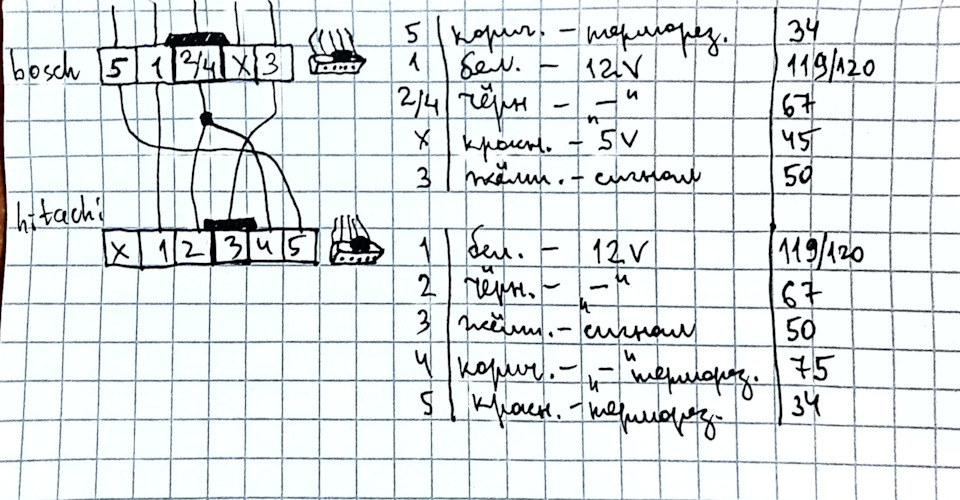 bosch 5 1 2/4 X 3
hitachi
X 1 2 3 4 5
5 корич. - терморез. 34
1 бел. - 12V 119/120
2/4 чёрн - „—" 67
X красн. - 5V 45
3 жёлт. - сигнал 50
1 бел. - 12V 119/120
2 чёрн. - „—" 67
3 жёлт. - сигнал 50
4 корич. - „—" терморез. 75
5 красн. - терморез. 34